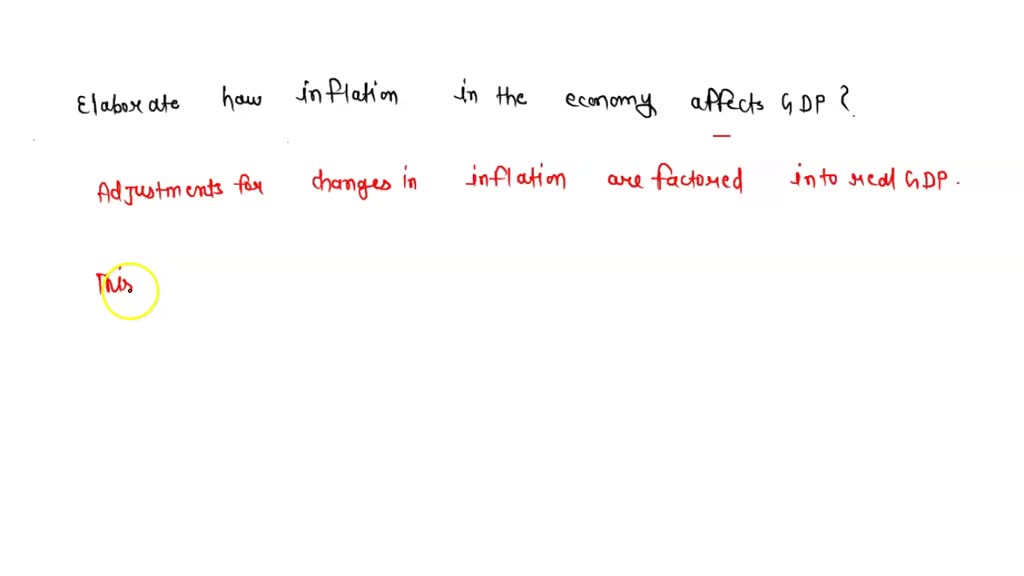 Elaborate how inflation in the economy affects GDP?
Adjustments for changes in inflation are factored into real GDP.
This